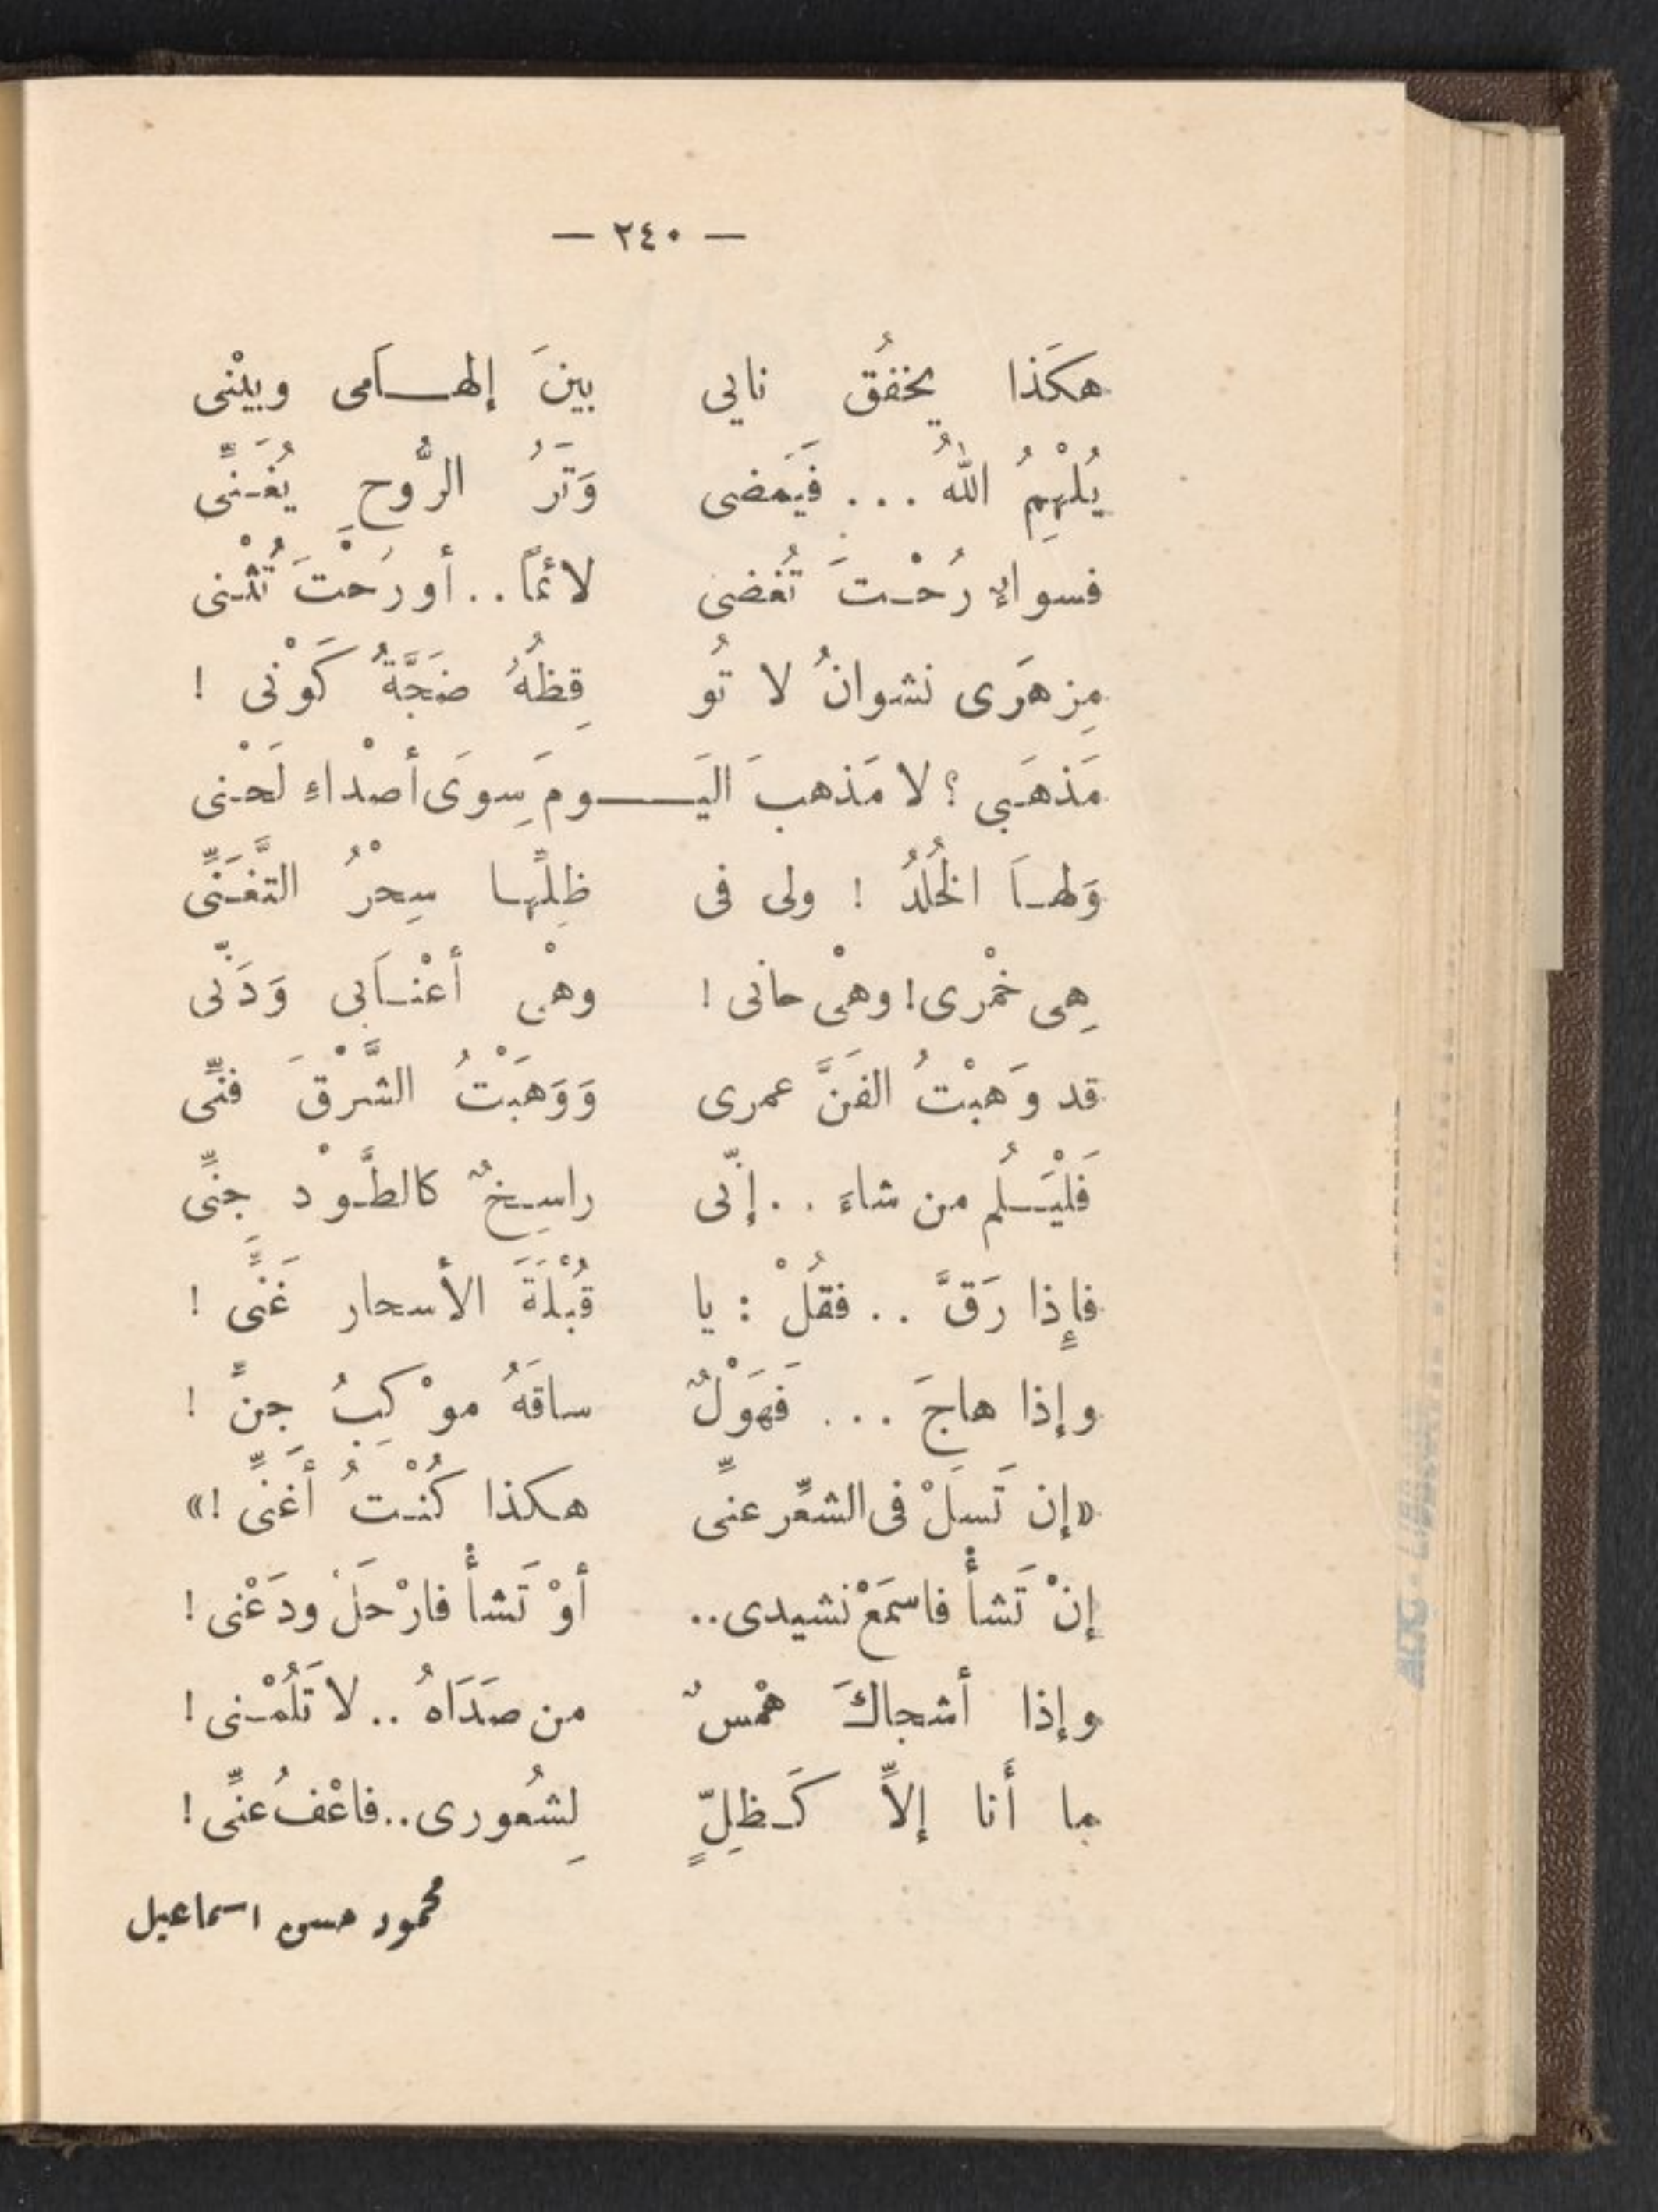 — ٢٤٠ —
هكَذا يخفقُ نايى بينَ إلهـامى وبيْنى
يُلْهِمُ اللهُ ... فَيَمَضى وَتَرُ الرُّوحِ يُغَـنِّى
فسواءٍ رُحْـتَ تُغضى لائمًا .. أو رَحْتَ تُثْـنى
مِزهَرى نشوانُ لا تُو قِظُهُ ضَجَّةُ كَوْنى !
مَذهَبى ؟ لا مَذهبَ اليَـومَ سِوَى أصْداءِ لَحْـنى
وَلهـاَ الخُلدُ ! ولى فى ظِلِّها سِحْرُ التَّغَـنِّى
هِى خمْرى ! وهْى حانى ! وهْى أعْنـاَبى وَدَنّى
قد وَهبْتُ الفَنَّ عمرى وَوَهَبْتُ الشَّرْقَ فنِّى
فَلْيَـلُم من شاءَ .. إنّى راسِـخٌ كالطَّـوْد جِنِّى
فإِذا رَقَّ .. فقُلْ : يا قُبْلَةَ الأسحارِ غَنِّى !
وإذا هاجَ ... فَهَوْلٌ ساقَهُ موْكِبُ جِنِّ !
«إن تَسلْ فى الشعِّر عنِّى هكذا كُنْتُ أغَنِّى !»
إنْ تَشأْ فاسمَعْ نشيدى .. أوْ تَشأْ فارْحَلْ ودَعْنى !
وإذا أشجاكَ همْسٌ من صَدَاهُ .. لا تَلُمْـنى !
ما أَنا إلاَّ كَـظِلّ ٍ لِشُعورى .. فاعْفُ عنِّى !
محمود حسن اسماعيل